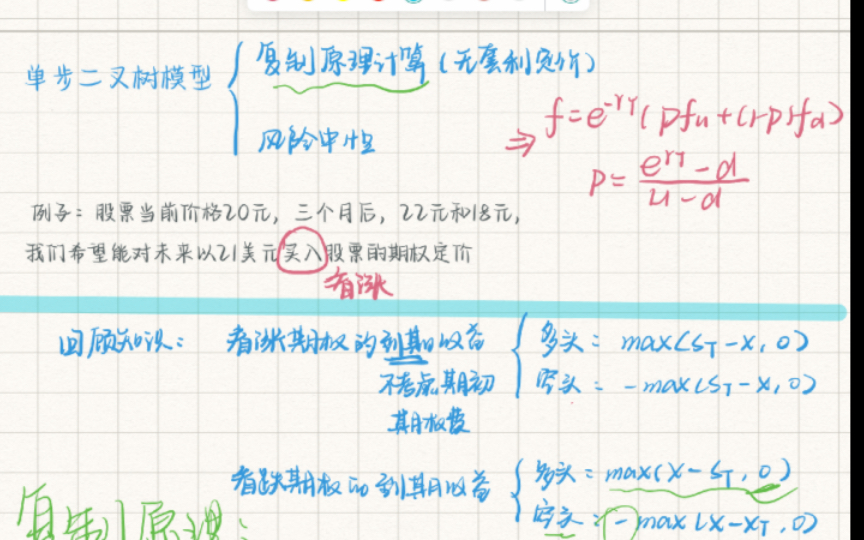 单步二叉树模型
复制原理计算(无套利定价)
风险中性
⇒ f=e^-rT(pfu+(1-p)fd)
p=(e^rT-d)/(u-d)
例子:股票当前价格20元,三个月后,22元和18元,
我们希望能对未来以21美元买入股票的期权定价
看涨
回顾知识: 看涨期权的到期收益
多头: max(S_T-X,0)
空头: -max(S_T-X,0)
不考虑期初
期权费
看跌期权的到期收益
多头:max(X-S_T,0)
空头:-max(X-X_T,0)
复制原理: